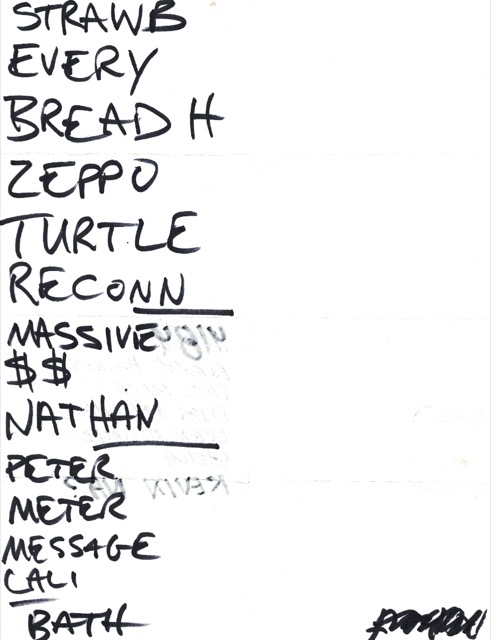 STRAWB
EVERY
BREAD H
ZEPPO
TURTLE
RECONN
MASSIVE
$$
NATHAN
PETER
METER
MESSAGE
CALI
BATH